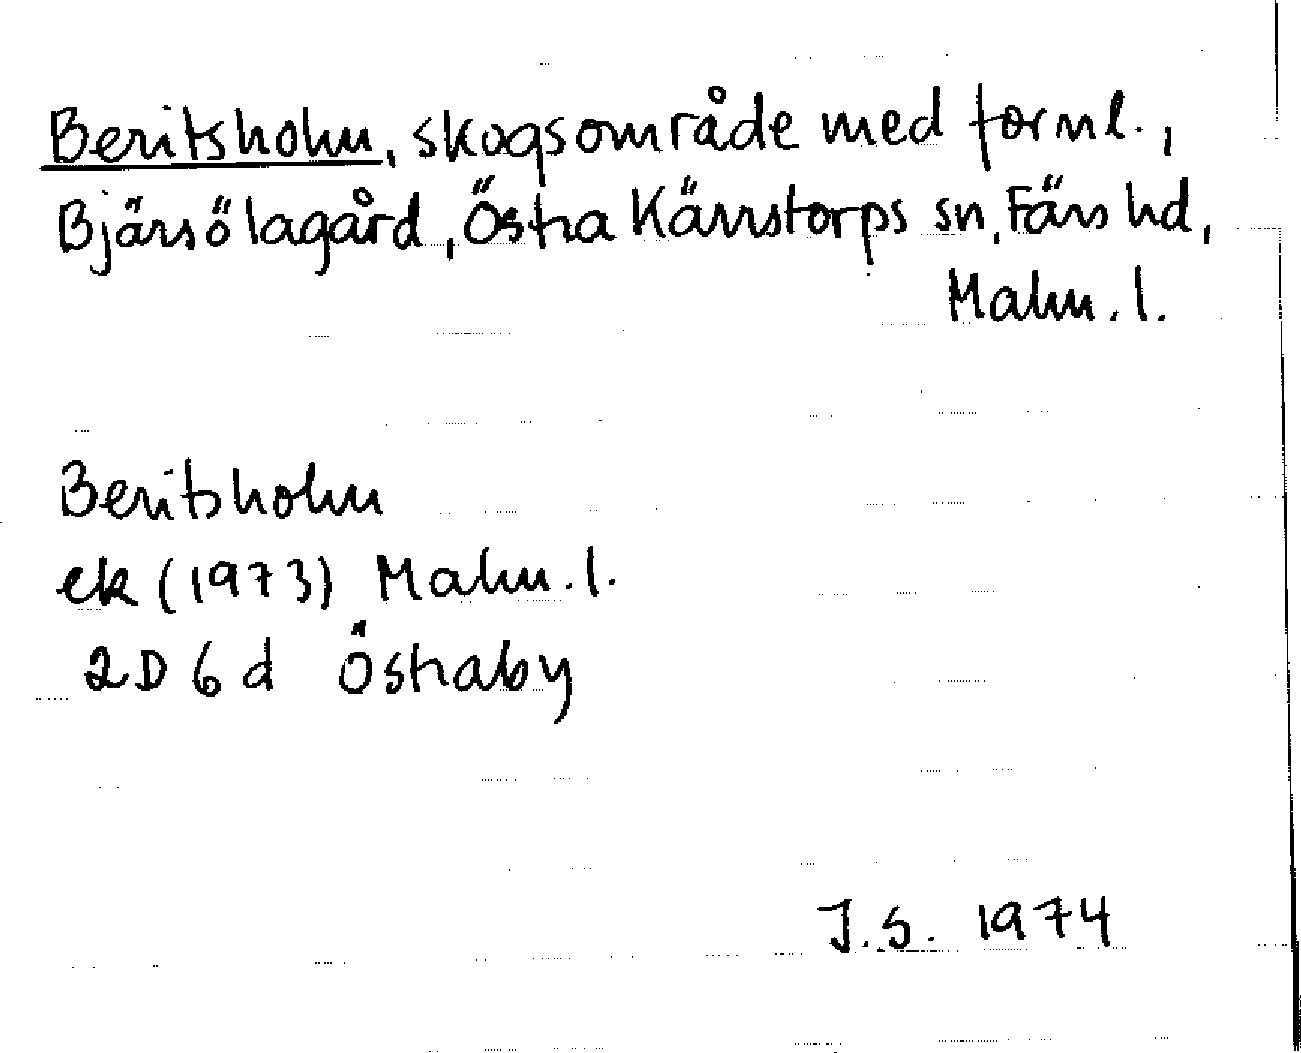 Beritsholm, skogsområde med fornl.,
Bjärsölagård, Östra Kärrstorps sn, Färs hd,
Malm. l.
Beritsholm
ek (1973) Malm. l.
2D 6 d Östraby
J.S. 1974